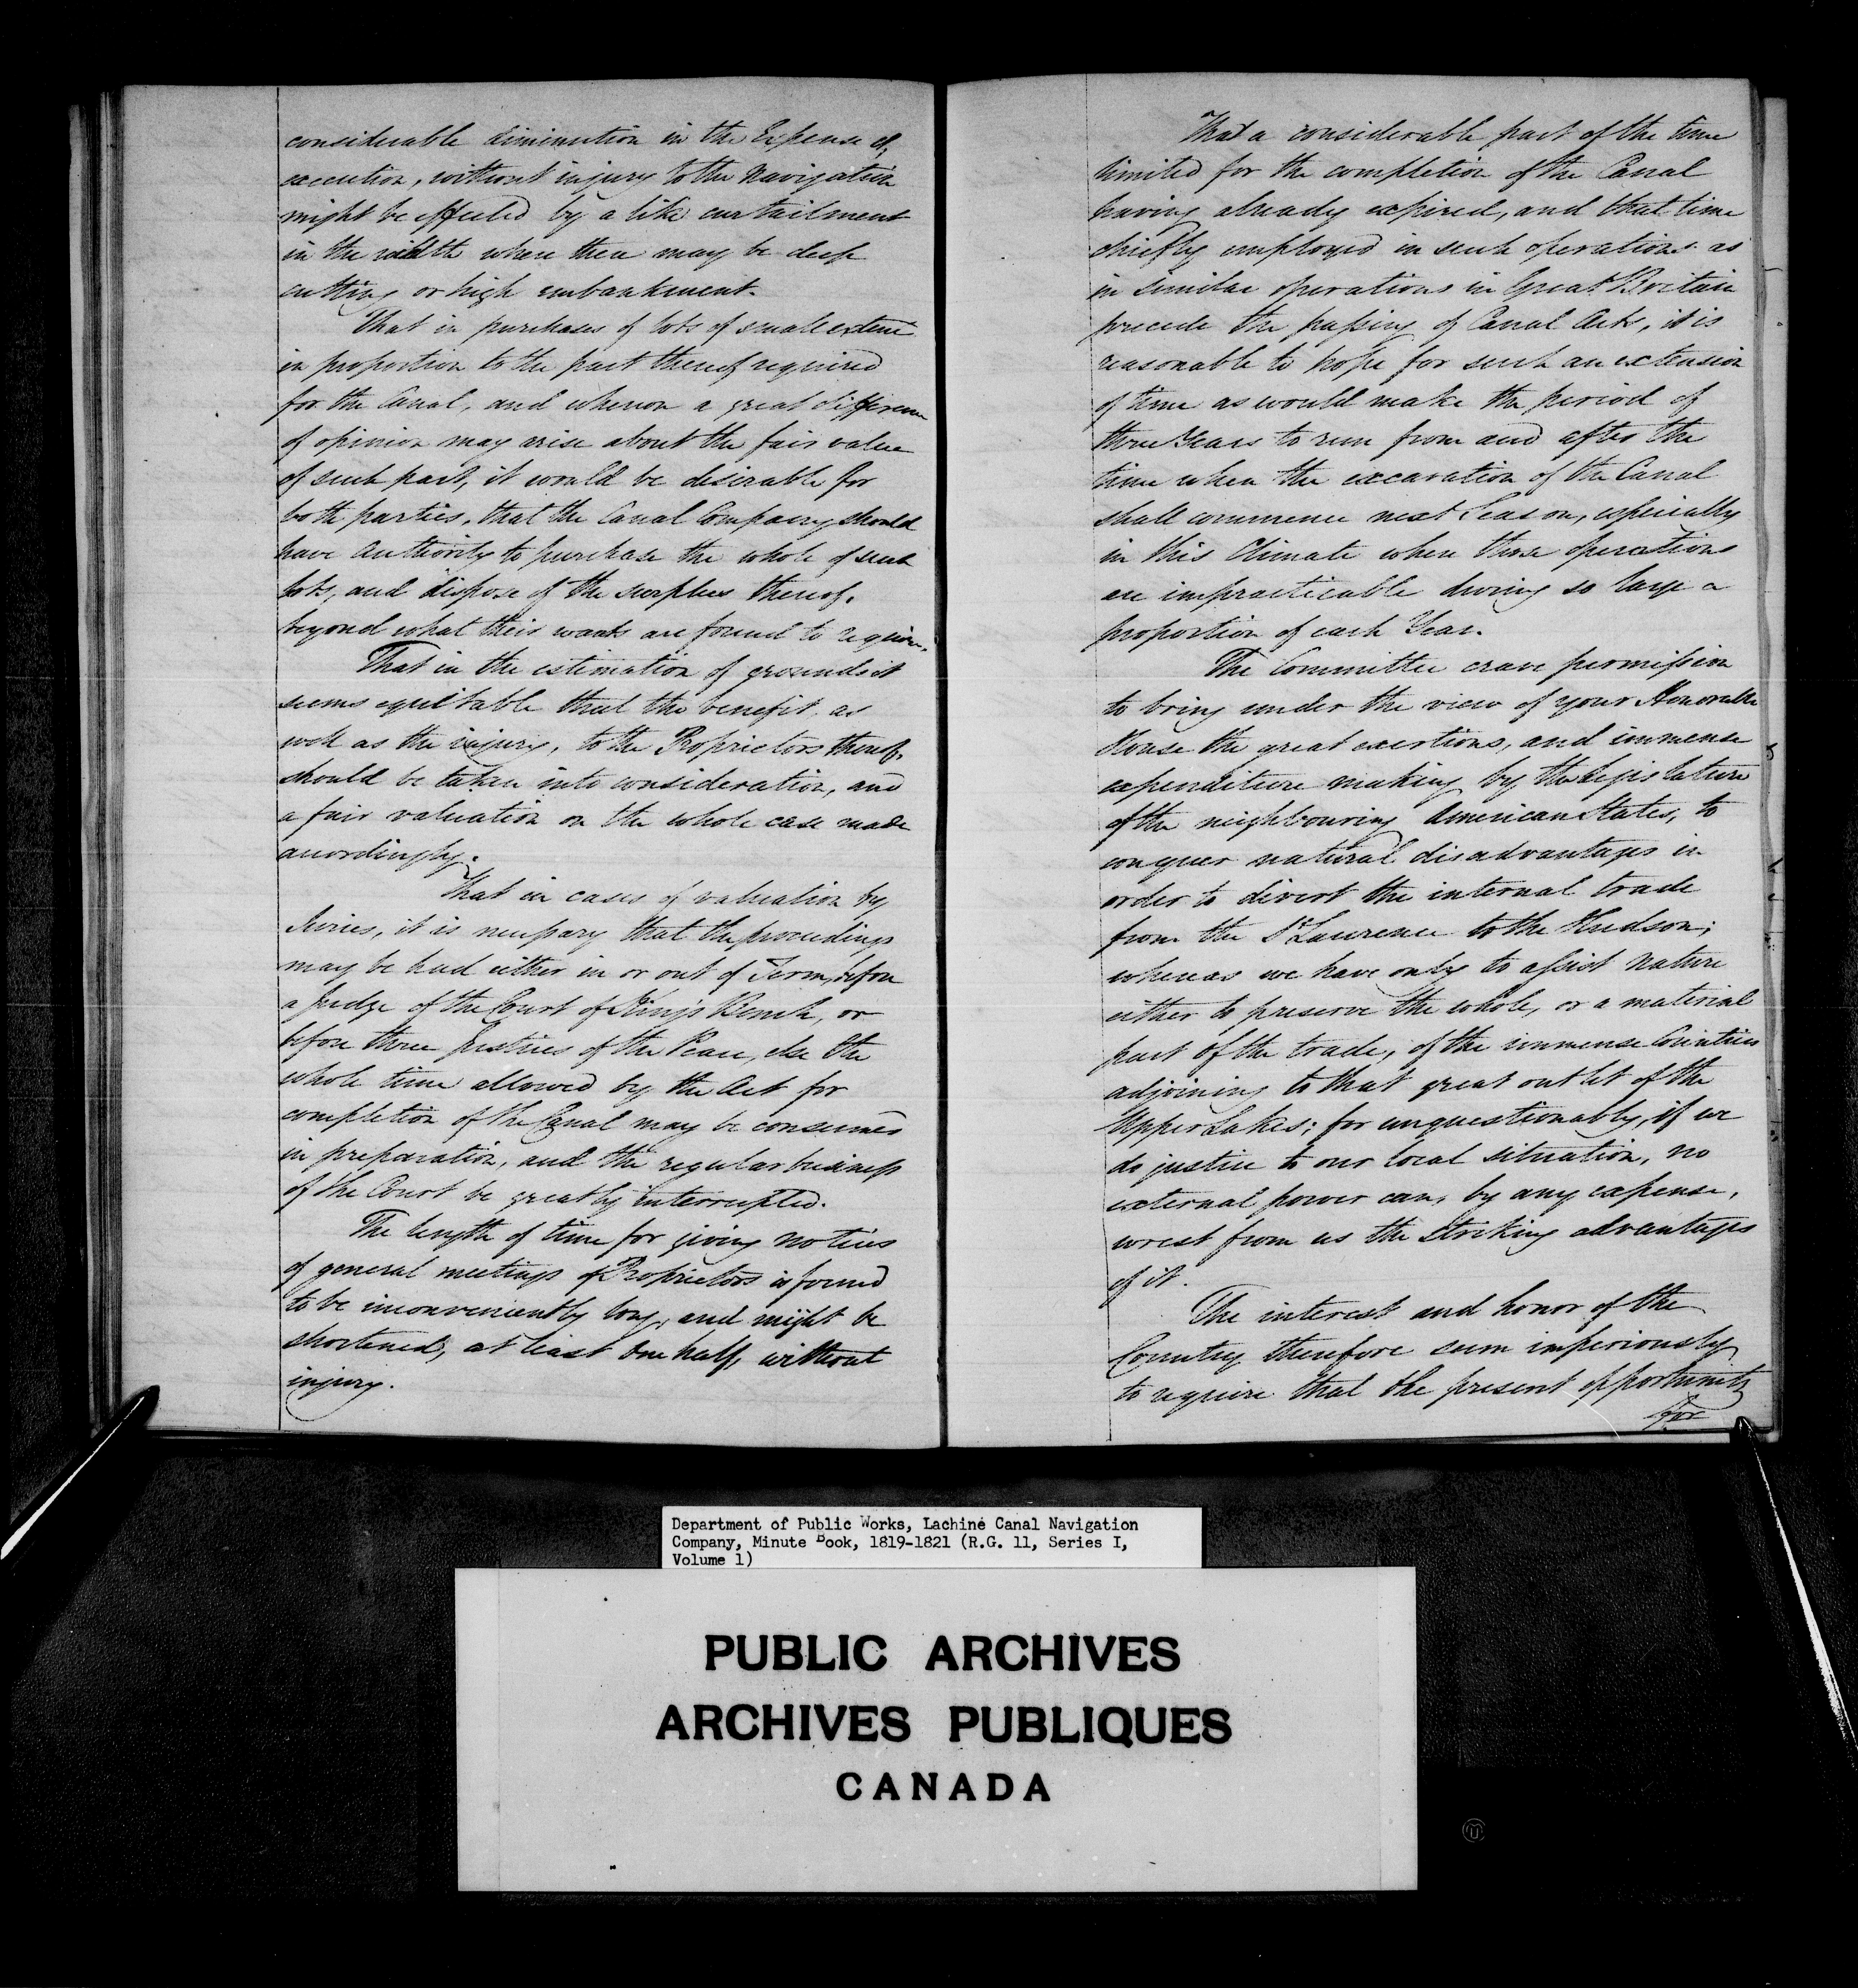 considerable diminution in the Expense of,
execution, without injury to the Navigation
might be effected by a like curtailment
in the width where there may be deep
cutting or high embankment.
That in purchases of lots of small extent
in proportion to the part thereof required
for the Canal, and whereon a great difference
of opinion may arise about the fair value
of such part, it would be desirable for
both parties, that the Canal Company should
have authority to purchase the whole of such
lots, and dispose of the surplus thereof,
beyond what their wants are found to require.
That in the estimation of grounds it
seems equitable that the benefit, as
well as the injury, to the Proprietors thereof,
should be taken into consideration, and
a fair valuation on the whole case made
accordingly.
That in cases of valuation by
Juries, it is necessary that the proceedings
may be had either in or out of Term, before
a Judge of the Court of King's Bench, or
before three Justices of the Peace, else the
whole time allowed by the Act for
completion of the Canal may be consumed
in preparation, and the regular business
of the Court be greatly interrupted.
The length of time for giving notices
of general meetings of Proprietors is found
to be inconveniently long, and might be
shortened, at least One half, without
injury.
That a considerable part of the time
limited for the completion of the Canal
having already expired, and that time
chiefly employed in such operations as
in similar operations in Great Britain
precede the passing of Canal Acts, it is
reasonable to hope for such an extension
of time as would make the period of
three Years to run from and after the
time when the excavation of the Canal
shall commence next Season, especially
in this Climate where those operations
are impracticable during so large a
proportion of each Year.
The Committee crave permission
to bring under the view of your Honorable
House the great exertions, and immense
expenditure making by the Legislature
of the neighbouring American States, to
conquer natural disadvantages in
order to divert the internal trade
from the St Lawrence to the Hudson;
whereas we have only to assist nature
either to preserve the whole, or a material
part of the trade, of the immense Countries
adjoining to that great outlet of the
Upper Lakes; for unquestionably, if we
do justice to our local situation, no
external power can, by any expense,
wrest from us the striking advantages
of it.
The interest and honor of the
Country therefore seem imperiously
to require that the present opportunity
for
Department of Public Works, Lachine Canal Navigation
Company, Minute Book, 1819-1821 (R.G. 11, Series I,
Volume 1)
PUBLIC ARCHIVES
ARCHIVES PUBLIQUES
CANADA